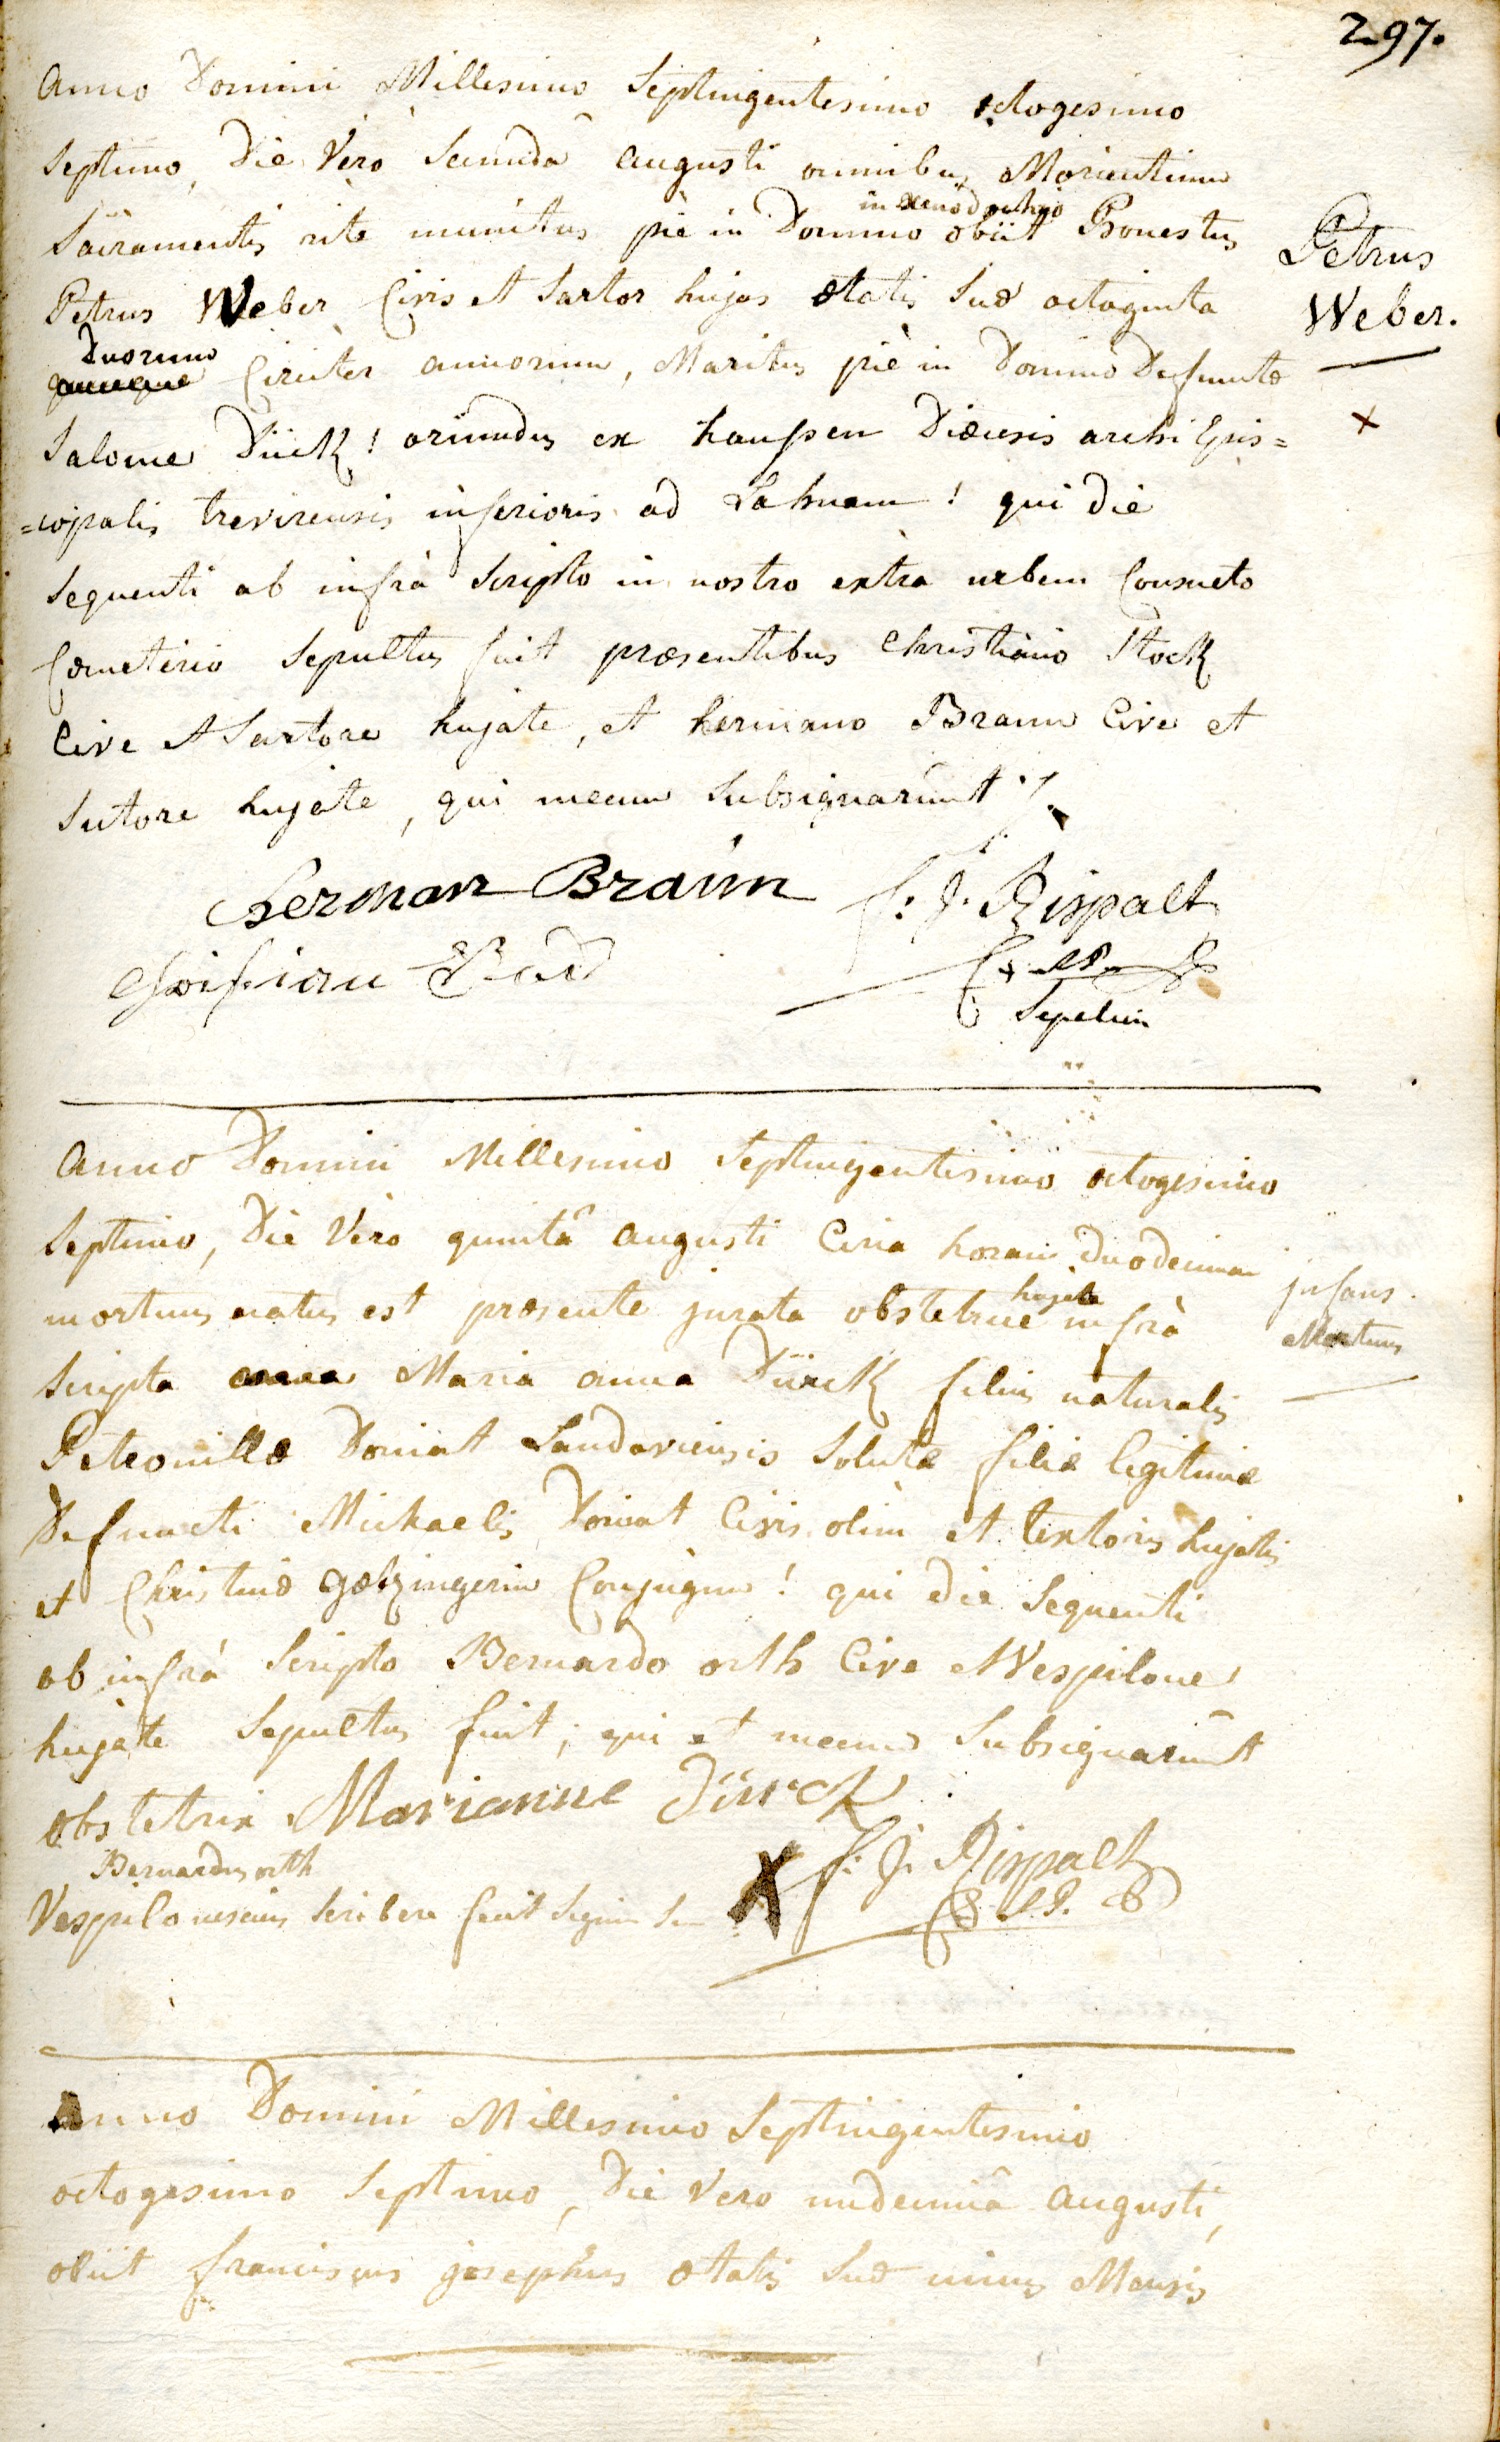 297.
Anno Domini Millesimo Septingentesimo octogesimo
Septimo, Die Vero Secundâ augusti omnibus Morientium
Sacramentis rite munitus piè in Domino in xenodochio obiit Honestus
Petrus Weber Civis et Sartor hujas ætatis Suæ octoginta
Duorum Circiter annorum, Maritus piè in Domino Defunctæ
Salome Dück! oriundus ex hausen Diœcesis archi Epis=
=copalis trevirensis inferioris ad Lahnam! qui die
sequenti ab infrà Scripto in nostro extra urbem Consueto
Cœmeterio Sepultus fuit præsentibus Christiano Stock
Cive et Sartore hujate, et hermano Braun Cive et
Sutore hujate, qui mecum Subsignarunt
Petrus
Weber.
x
Herman Braun
F: J. Rispalt
C: S.P.
Sepelivi
Anno Domini Millesimo Septingentesimo octogesimo
Septimo, Die Vero quintâ augusti Circa horam duodecimam
mortuus natus est præsente jurata obstetrice hujate infrà
Scripta Maria anna Dürck filius naturalis
Petronillæ Doniat Landaviensis Solutæ filiæ legitimæ
Defuncti Michaelis Doniat Civis olim et textoris hujatis
et Christinæ Gœtzingerin Conjugum! qui die Sequenti
ab infrà Scripto Bernardo orth Cive et Vespilone
hujate Sepultus fuit; qui et mecum Subsignarunt
infans
Mortuus
obstetrix Marianne Dürck
Bernardus orth
Vespilo nescius scribere fecit Signum X
F: J. Rispalt
C: S.P.
Anno Domini Millesimo Septingentesimo
octogesimo Septimo, Die Vero undecimâ augusti,
obiit franciscus josephus ætatis Suæ unius Mensis